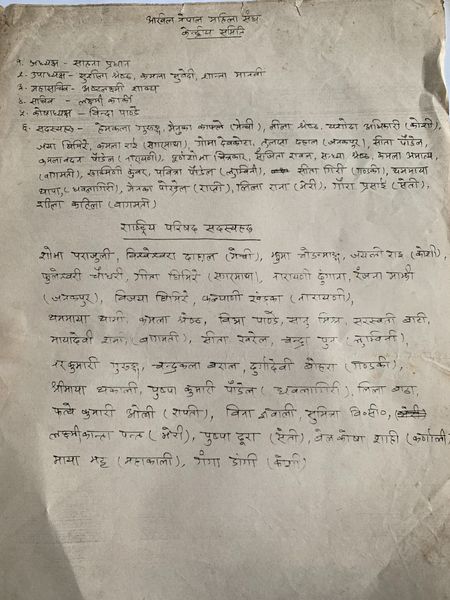 अखिल नेपाल महिला संघ
केन्द्रीय समिति
१. अध्यक्ष - साहना प्रधान
२. उपाध्यक्ष - सुशीला श्रेष्ठ, कमला सुवेदी, शान्ता मानवी
३. महासचिव - अष्टलक्ष्मी शाक्य
४. सचिव - लक्ष्मी कार्की
५. कोषाध्यक्ष - विन्दा पाण्डे
६. सदस्यहरु - हेमकला गुरुङ्ग, मेनुका काफ्ले (मेची), लीला श्रेष्ठ, यशोदा अधिकारी (कोशी),
जसा घिमिरे, कमला राई (सगरमाथा), गोमा देवकोटा, तुलसा दाहाल (जनकपुर), सीता पौडेल,
कमलावदन पौडेल (नारायणी), पूर्णशोभा चित्रकार, सुजिता शाक्य, सन्ध्या श्रेष्ठ, कमला अमात्य
(वागमती), रुक्मिणी कुंवर, पवित्रा पौडेल (लुम्विनी), सीता गिरी (गण्डकी), धनमाया
थापा, (धवलागिरी), मेनका पोख्रेल (राप्ती), लिला राना (भेरी), गौरा प्रसाई (सेती),
शीला कटिला (वागमती)
राष्ट्रिय परिषद सदस्यहरु
शोभा पराजुली, विश्वेश्वरा दाहाल (मेची), झुमा जयन्ती राइ (कोशी),
फुलेश्वरी चौधरी, गीता घिमिरे (सगरमाथा), नारायणी ढुंगाना, रंजना माझी
(जनकपुर), विजया घिमिरे, कल्याणी खड्का (नारायणी),
धनमाया यागी, कमला श्रेष्ठ, विद्या पाण्डे, सानु मिश्र, सरस्वती
मायादेवी शर्मा, (वागमती), सीता खरेल, चन्द्रा पुन (लुम्विनी)
कुमारी गुरुङ्ग, चन्द्रकला बराल, दुर्गादेवी बोहरा (गण्डकी),
श्रीमाया थकाली, पुष्पा कुमारी पौडेल (धवलागिरी), लिला वाढा,
फत्ते कुमारी ओली (राप्ती), विना ज्ञवाली सुमित्रा वि०सी०,
लक्ष्मीकान्ता पन्त (भेरी), पुष्पा दूरा (सेती), वेलकोषा शाही (कर्णाली)
माया भट्ट (महाकाली), गंगा डांगी (कोशी)